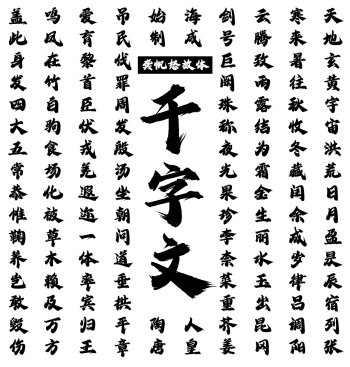 天地玄黄宇宙洪荒日月盈昃辰宿列张
寒来暑往秋收冬藏闰余成岁律吕调阳
云腾致雨露结为霜金生丽水玉出昆冈
剑号巨阙珠称夜光果珍李奈菜重芥姜
海咸
人皇
始制
陶唐
千字文
吊民伐罪周发殷汤坐朝问道垂拱平章
爱育黎首臣伏戎羌遐迩一体率宾归王
鸣凤在竹白驹食场化被草木赖及万方
盖此身发四大五常恭惟鞠养岂敢毁伤